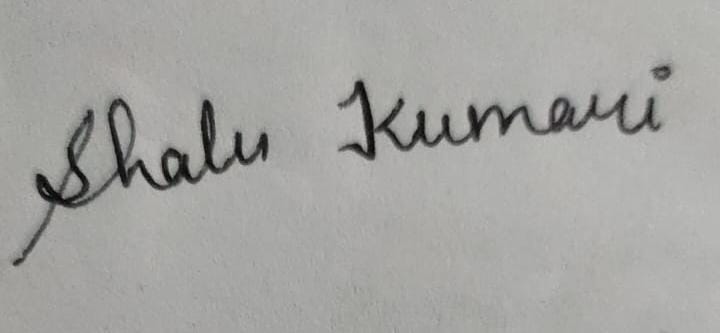 Shalu Kumari